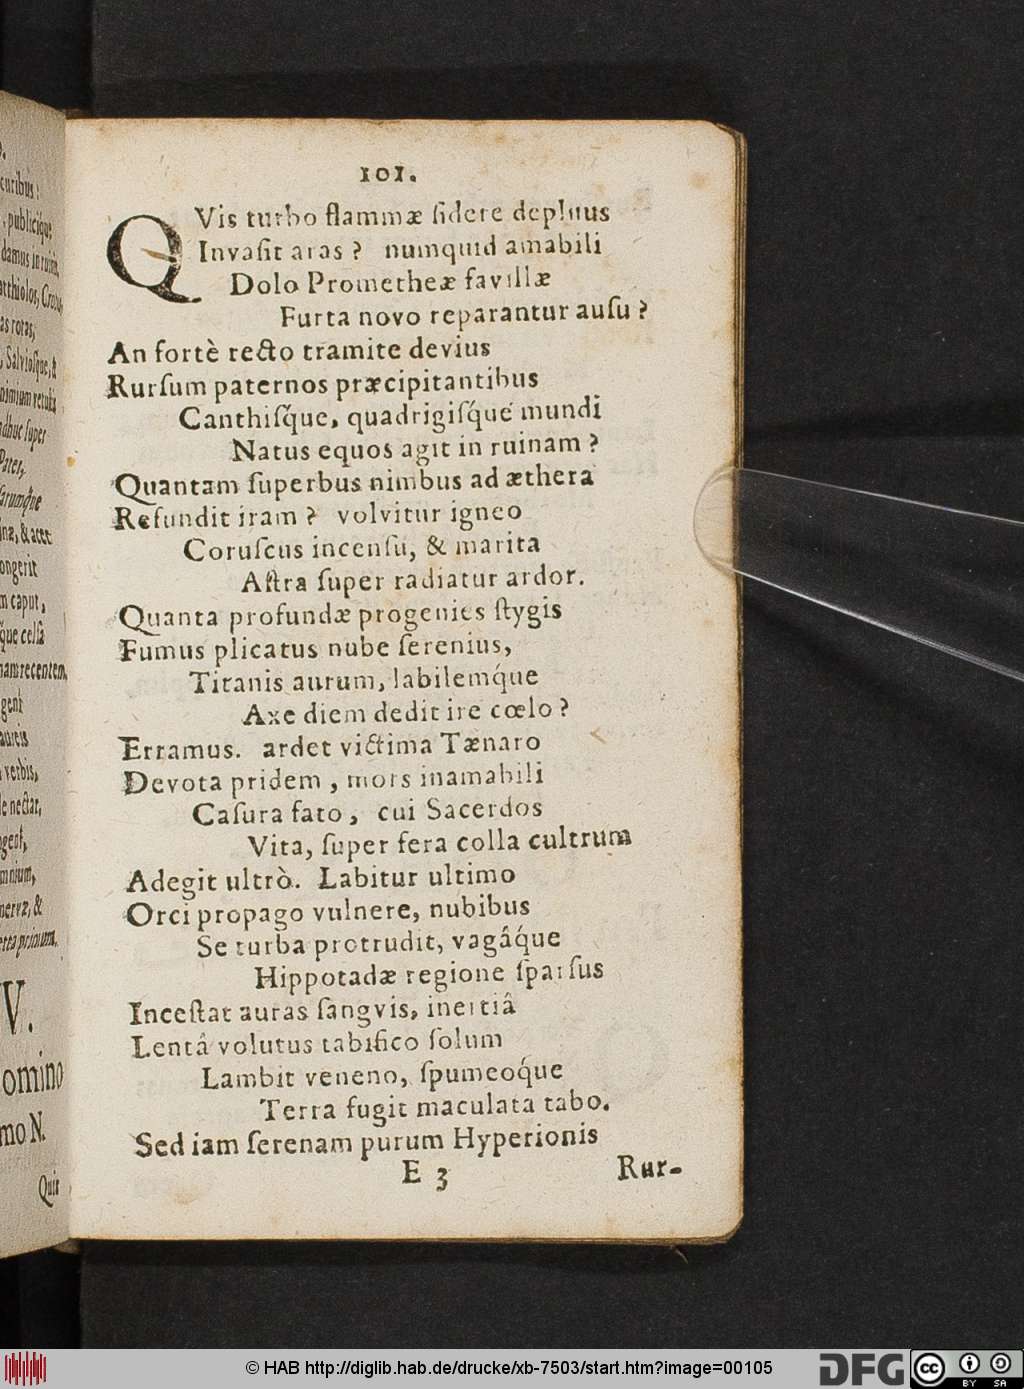 101.
QVis turbo flammæ ſidere depluus
Invaſit aras? numquid amabili
Dolo Prometheæ favillæ
Furta novo reparantur auſu?
An fortè recto tramite devius
Rurſum paternos præcipitantibus
Canthiſq́ue, quadrigiſq́ue mundi
Natus equos agit in ruinam?
Quantam ſuperbus nimbus ad æthera
Refundit iram? volvitur igneo
Coruſcus incenſu, & marita
Aſtra ſuper radiatur ardor.
Quanta profundæ progenies ſtygis
Fumus plicatus nube ſerenius,
Titanis aurum, labilemq́ue
Axe diem dedit ire cœlo?
Erramus. ardet victima Tænaro
Devota pridem, mors inamabili
Caſura fato, cui Sacerdos
Vita, ſuper fera colla cultrum
Adegit ultrò. Labitur ultimo
Orci propago vulnere, nubibus
Se turba protrudit, vagâq́ue
Hippotadæ regione ſparſus
Inceſtat auras ſangvis, inertiâ
Lentâ volutus tabifico ſolum
Lambit veneno, ſpumeoq́ue
Terra fugit maculata tabo.
Sed iam ſerenam purum Hyperionis
E 3 Rur-
curibus:
, publiciq́ue
damus in ruinâ,
as rotas,
Pater,
inæ, & acer
ongerit
m caput,
que celſa
nam recentem,
gent
aureis
verbis,
le nectar,
gent,
omnium,
V.
omino
mo N.
Quis
© HAB http://diglib.hab.de/drucke/xb-7503/start.htm?image=00105
DFG
cc
BY SA